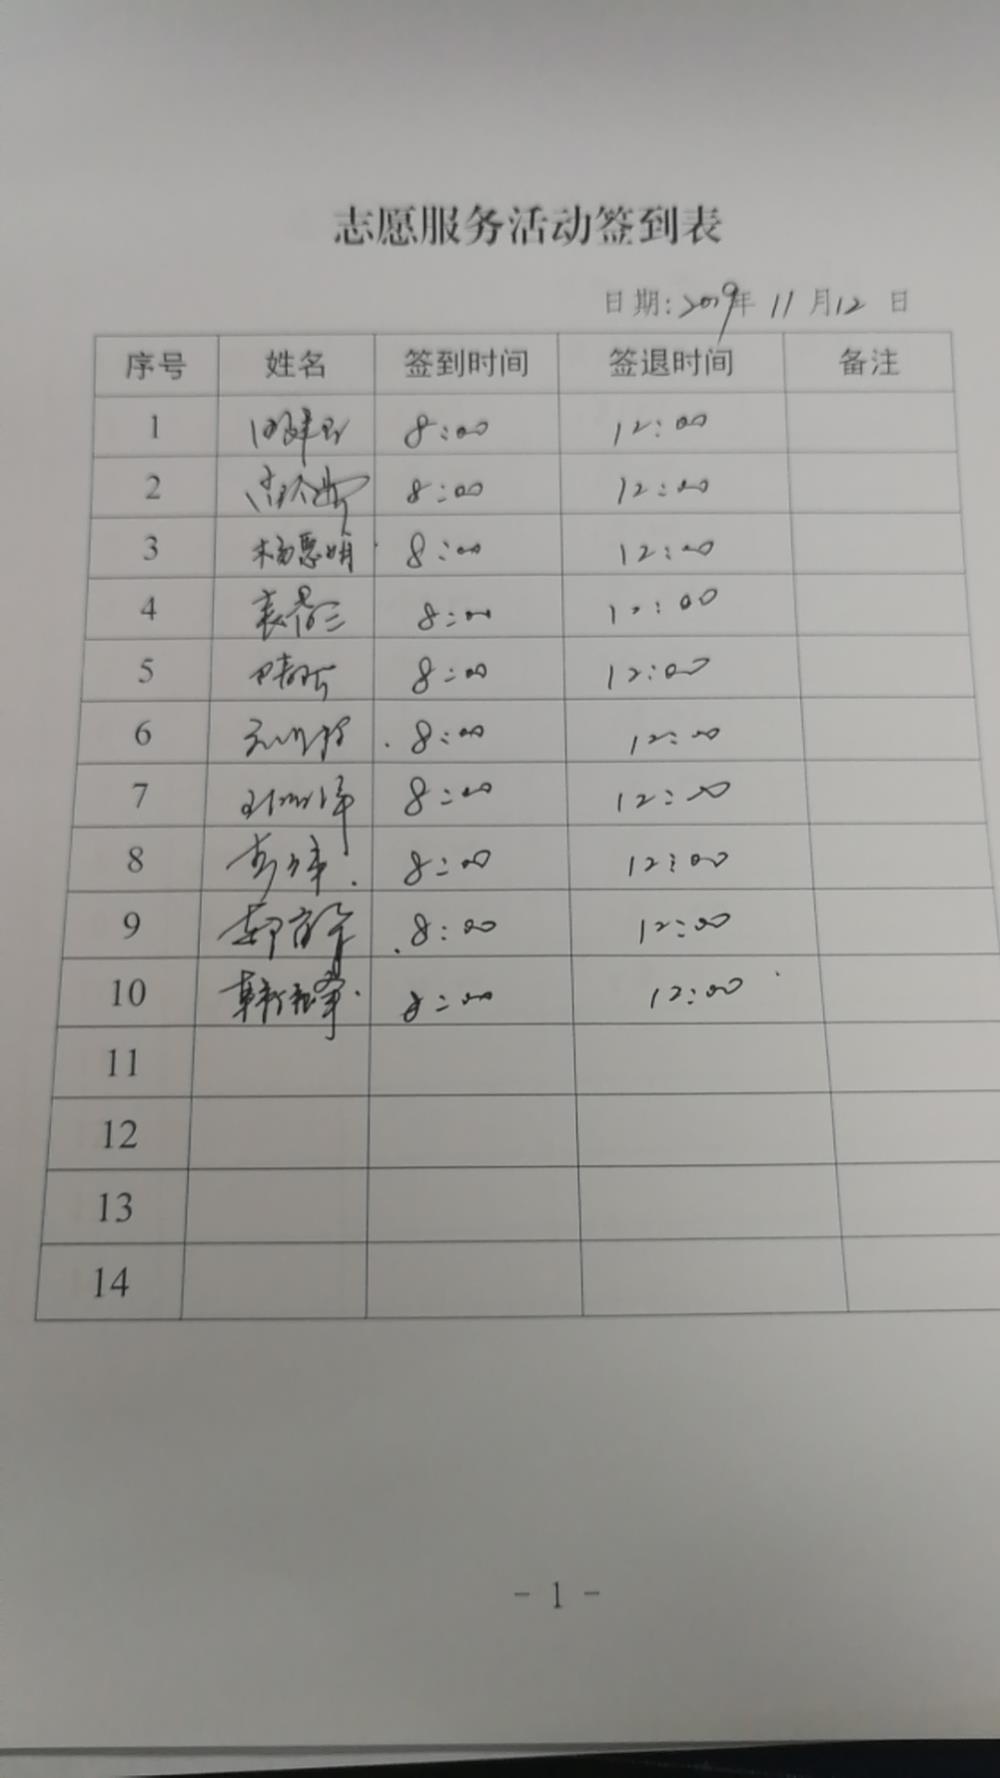 志愿服务活动签到表
日期:2019年 11 月12 日
序号 姓名 签到时间 签退时间 备注
1 8:00 12:00
2 8:00 12:00
3 杨恩娟 8:00 12:00
4 8:00 12:00
5 8:00 12:00
6 8:00 12:00
7 8:00 12:00
8 8:00 12:00
9 8:00 12:00
10 8:00 12:00
11
12
13
14
- 1 -